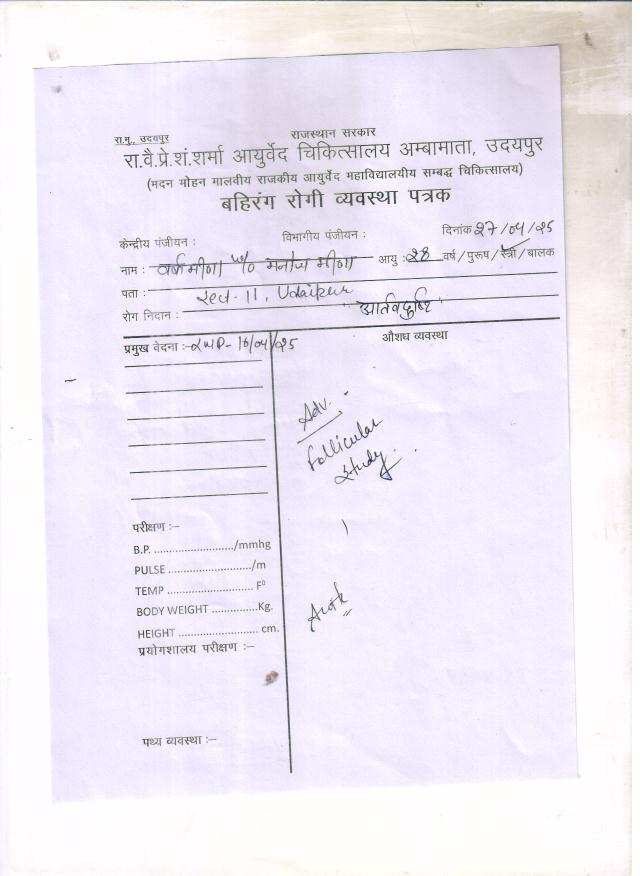 रा.मु., उदयपुर
राजस्थान सरकार
रा.वै.प्रे.शं.शर्मा आयुर्वेद चिकित्सालय अम्बामाता, उदयपुर
(मदन मोहन मालवीय राजकीय आयुर्वेद महाविद्यालयीय सम्बद्ध चिकित्सालय)
बहिरंग रोगी व्यवस्था पत्रक
केन्द्रीय पंजीयन : विभागीय पंजीयन : दिनांक 27/04/25
नाम : वर्षा मीणा w/o मनोज मीणा आयु : 28 वर्ष / पुरूष / स्त्री / बालक
पता : sect-11, Udaipur
रोग निदान : आर्तवदुष्टि
प्रमुख वेदना :- LMP- 16/04/25 औशघ व्यवस्था
Adv.
Follicular
study.
परीक्षण :-
B.P. ........................./mmhg
PULSE ........................../m
TEMP ........................... F⁰
BODY WEIGHT ..............Kg.
HEIGHT ......................... cm.
प्रयोगशालय परीक्षण :-
पथ्य व्यवस्था :-